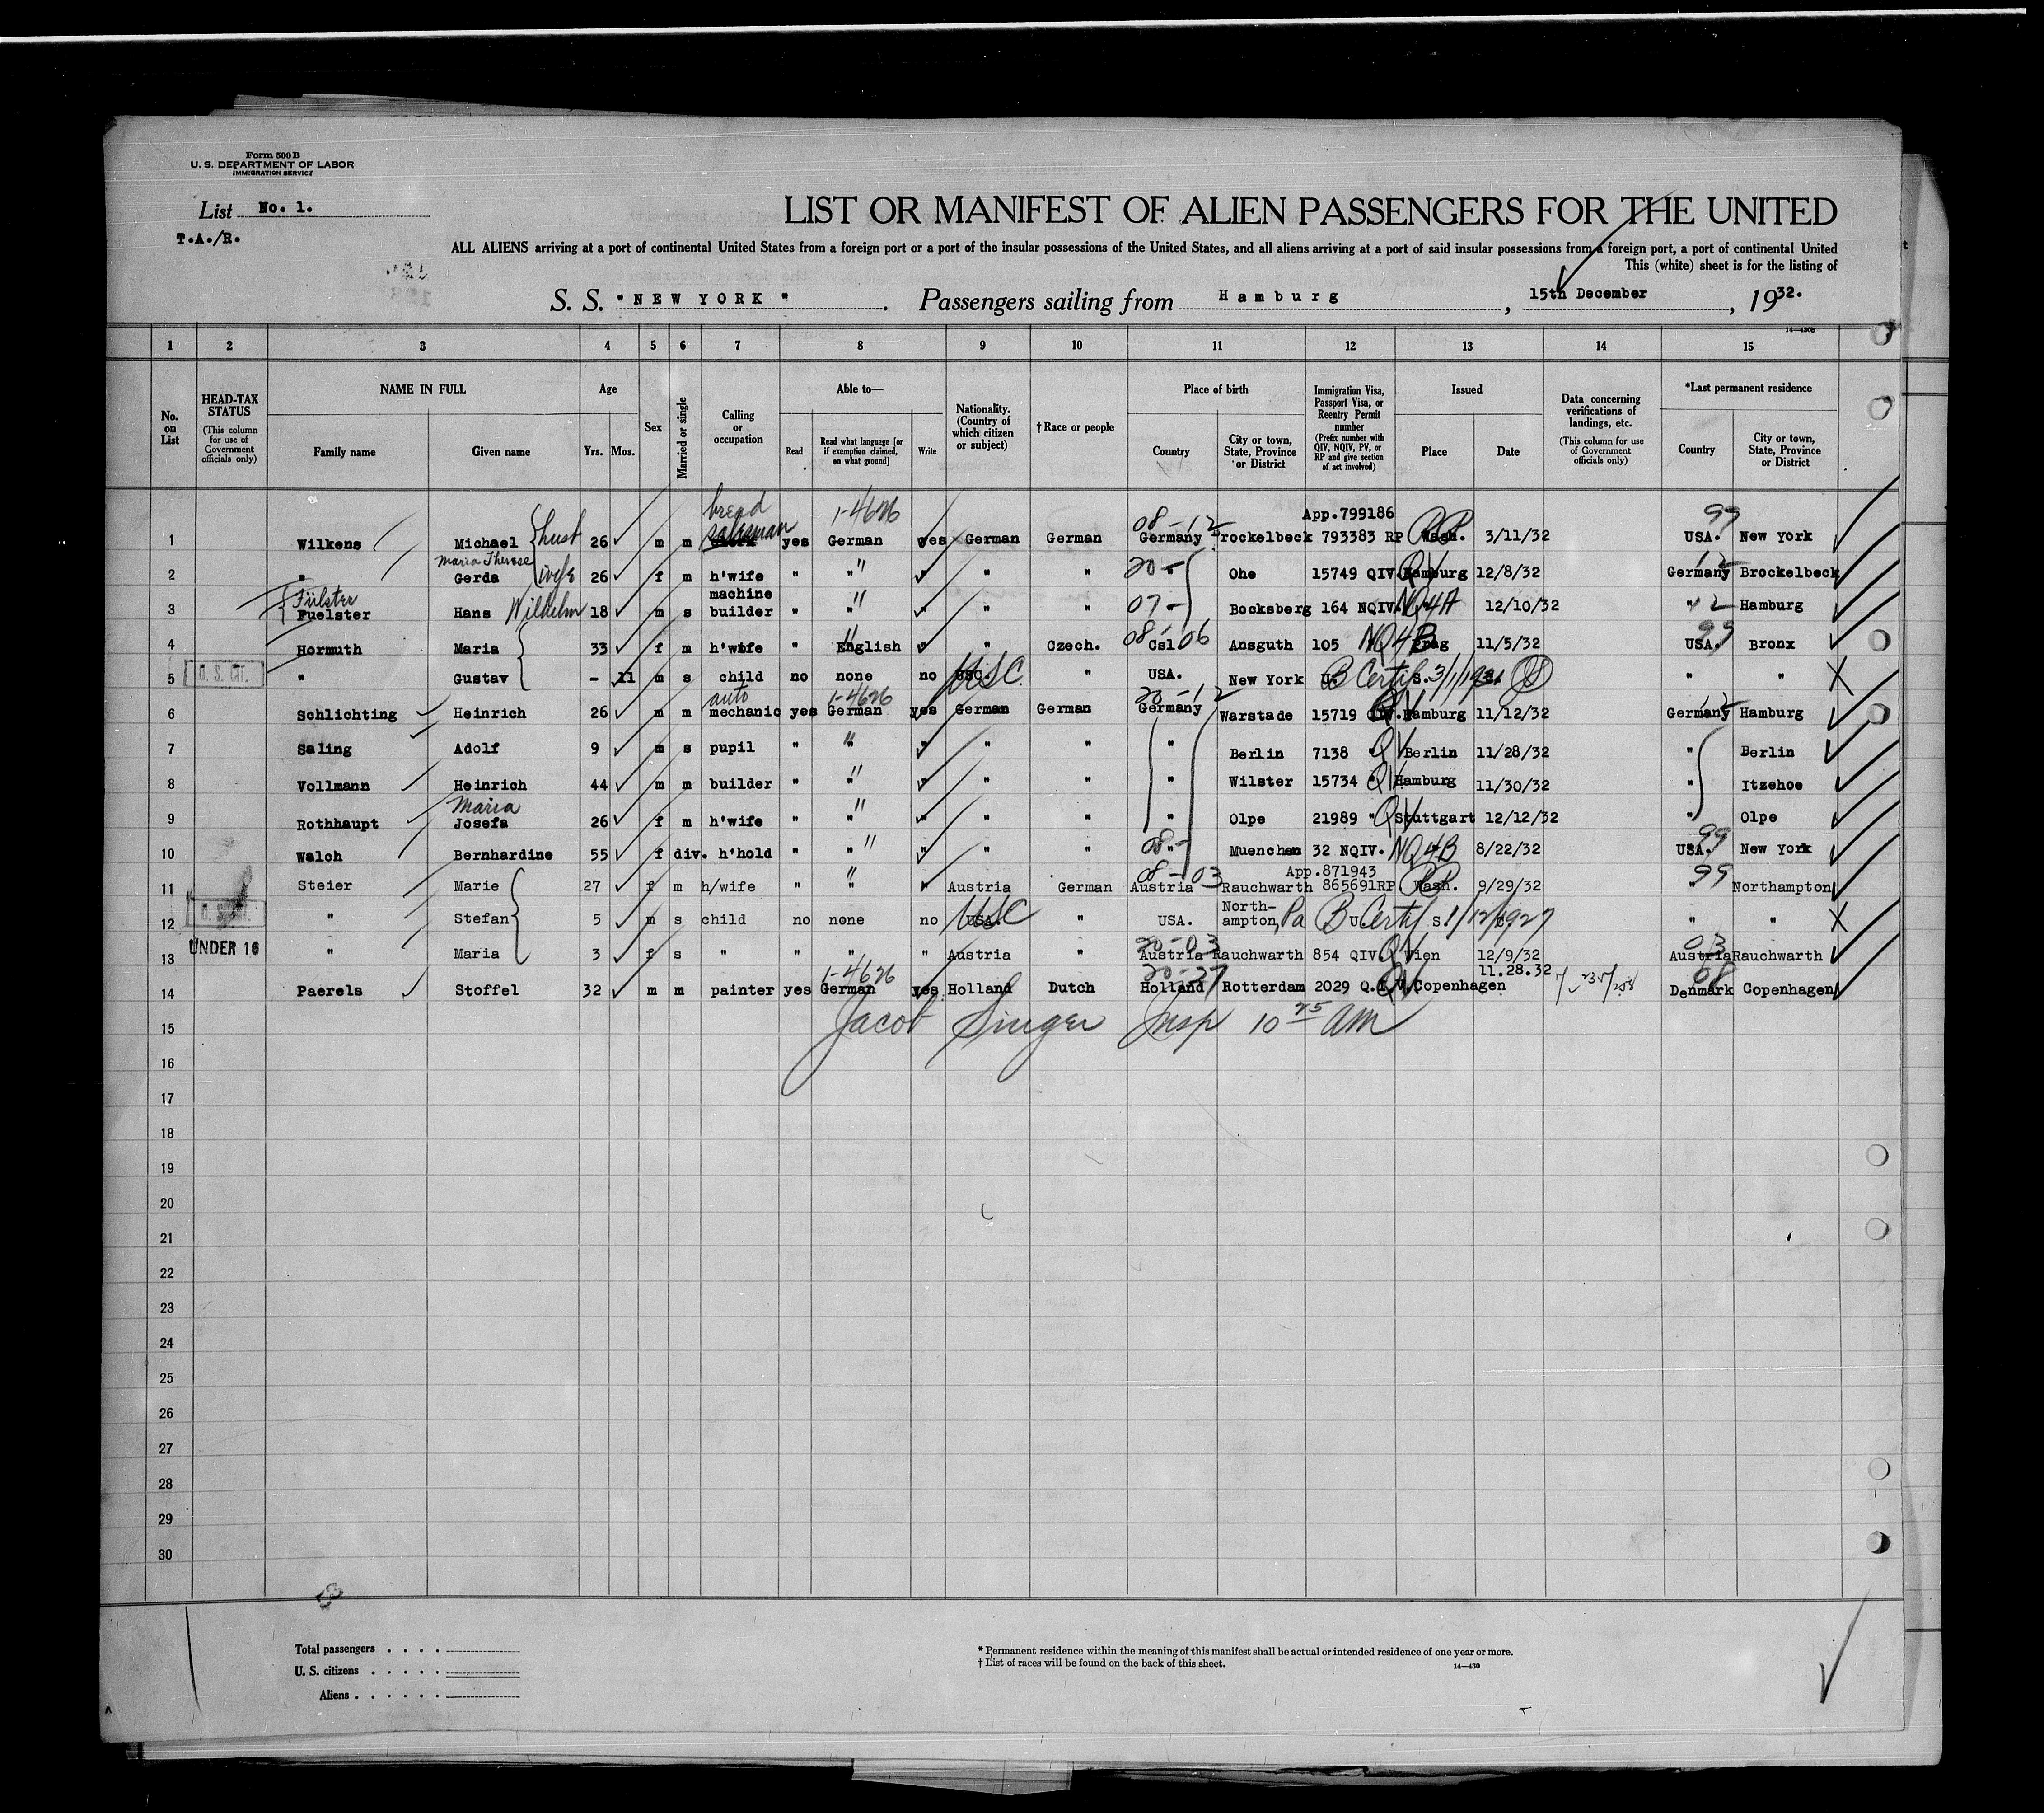 Form 500 B
U. S. DEPARTMENT OF LABOR
IMMIGRATION SERVICE
List No. 1.
T.A./R.
LIST OR MANIFEST OF ALIEN PASSENGERS FOR THE UNITED
ALL ALIENS arriving at a port of continental United States from a foreign port or a port of the insular possessions of the United States, and all aliens arriving at a port of said insular possessions from a foreign port, a port of continental United
This (white) sheet is for the listing of
S. S. "NEW YORK". Passengers sailing from Hamburg, 15th December, 1932.
14—430b
1 2 3 4 5 6 7 8 9 10 11 12 13 14 15
No. on List
HEAD-TAX STATUS (This column for use of Government officials only)
NAME IN FULL Family name Given name
Age Yrs. Mos.
Sex
Married or single
Calling or occupation
Able to— Read Read what language [or if exemption claimed, on what ground] Write
Nationality. (Country of which citizen or subject)
†Race or people
Place of birth Country City or town, State, Province or District
Immigration Visa, Passport Visa, or Reentry Permit number (Prefix number with QIV, NQIV, PV, or RP and give section of act involved)
Issued Place Date
Data concerning verifications of landings, etc. (This column for use of Government officials only)
*Last permanent residence Country City or town, State, Province or District
bread 1-4626 08-12 App.799186 99
1 Wilkens Michael husb 26 m m salesman yes German yes German German Germany Brockelbeck 793383 RP Wash. 3/11/32 USA. New York
Maria Therese
2 " Gerda wife 26 f m h'wife " " " " " 20- " Ohe 15749 QIV. Hamburg QV 12/8/32 Germany 12 Brockelbeck
Fülster machine
3 Fuelster Hans Wilhelm 18 m s builder " " " " " 07- Bocksberg 164 NQIV. NQ4A 12/10/32 " 12 Hamburg
4 Hormuth Maria 33 f m h'wife " English " " Czech. 08- Csl 06 Ansguth 105 NQ4B Prag 11/5/32 USA. 99 Bronx
5 U. S. CIT. " Gustav - 11 m s child no none no USC. USC " USA. New York B Certif S. " "
auto 1-4626 20-12
6 Schlichting Heinrich 26 m m mechanic yes German yes German German Germany Warstade 15719 QIV. QV Hamburg 11/12/32 Germany 12 Hamburg
7 Saling Adolf 9 m s pupil " " " " " " Berlin 7138 " QV Berlin 11/28/32 " Berlin
8 Vollmann Heinrich 44 m m builder " " " " " " Wilster 15734 " QV Hamburg 11/30/32 " Itzehoe
Maria
9 Rothhaupt Josefa 26 f m h'wife " " " " " " Olpe 21989 " QV Stuttgart 12/12/32 " Olpe
10 Walch Bernhardine 55 f div. h'hold " " " " " 08- " Muenchen 32 NQIV. NQ4B 8/22/32 USA. 99 New York
08-03 App.871943
11 Steier Marie 27 f m h/wife " " " Austria German Austria Rauchwarth 865691RP. Wash. 9/29/32 " 99 Northampton
12 U. S. CIT. " Stefan 5 m s child no none no USA. USC " USA. Northampton, Pa B Certif U S. 1/12/1927 " "
13 UNDER 16 " Maria 3 f s " " " " Austria " 20-03 Austria Rauchwarth 854 QIV. QV Wien 12/9/32 03 Austria Rauchwarth
1-4626 20-27 11.28.32 08
14 Paerels Stoffel 32 m m painter yes German yes Holland Dutch Holland Rotterdam 2029 Q.I.V. QV Copenhagen Denmark Copenhagen
15 Jacob Singer Insp 10 25 am
16
17
18
19
20
21
22
23
24
25
26
27
28
29
30
Total passengers . . . .
U. S. citizens . . . . .
Aliens . . . . . .
* Permanent residence within the meaning of this manifest shall be actual or intended residence of one year or more.
† List of races will be found on the back of this sheet.
14—430